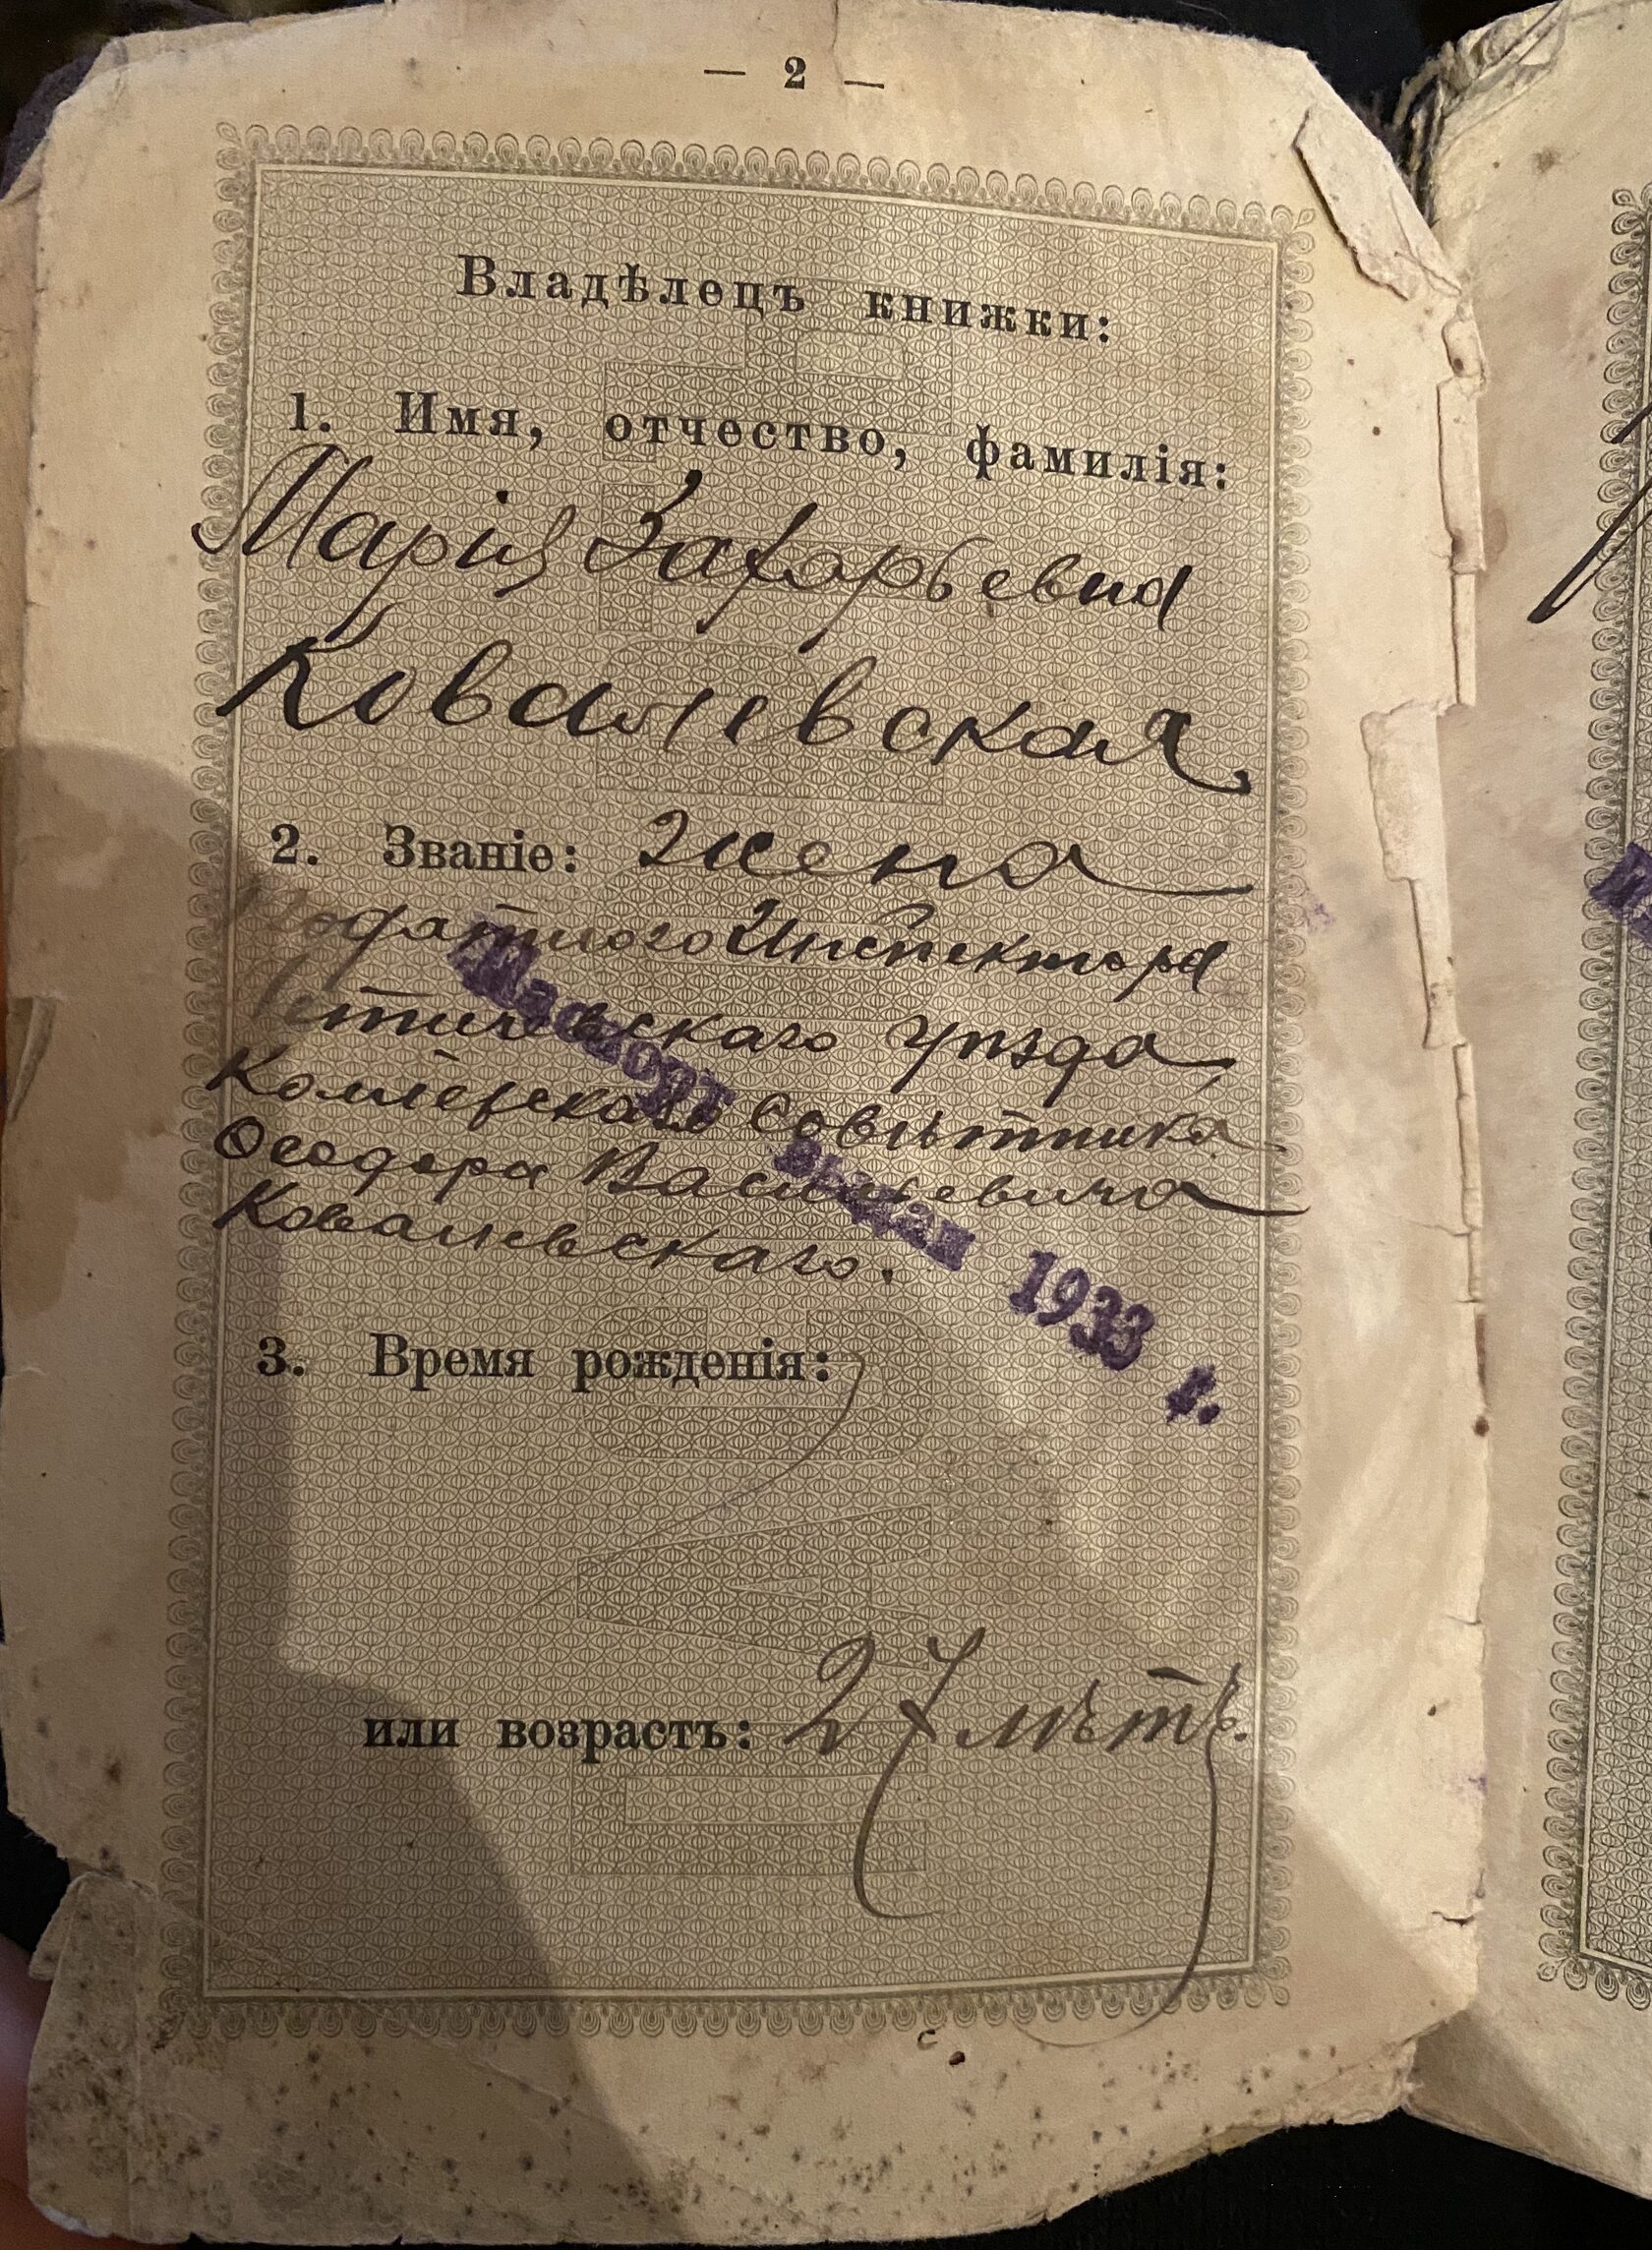 — 2 —
Владѣлецъ книжки:
1. Имя, отчество, фамилія:
Марія Захарьевна
Ковалевская
2. Званіе: жена
Податного Инспектора
уѣзда,
Коллежскаго Совѣтника
Ѳеодора Васильевича
Ковалевскаго.
Паспорт выдан 1933 г.
3. Время рожденія:
или возрастъ: 27 лѣтъ.